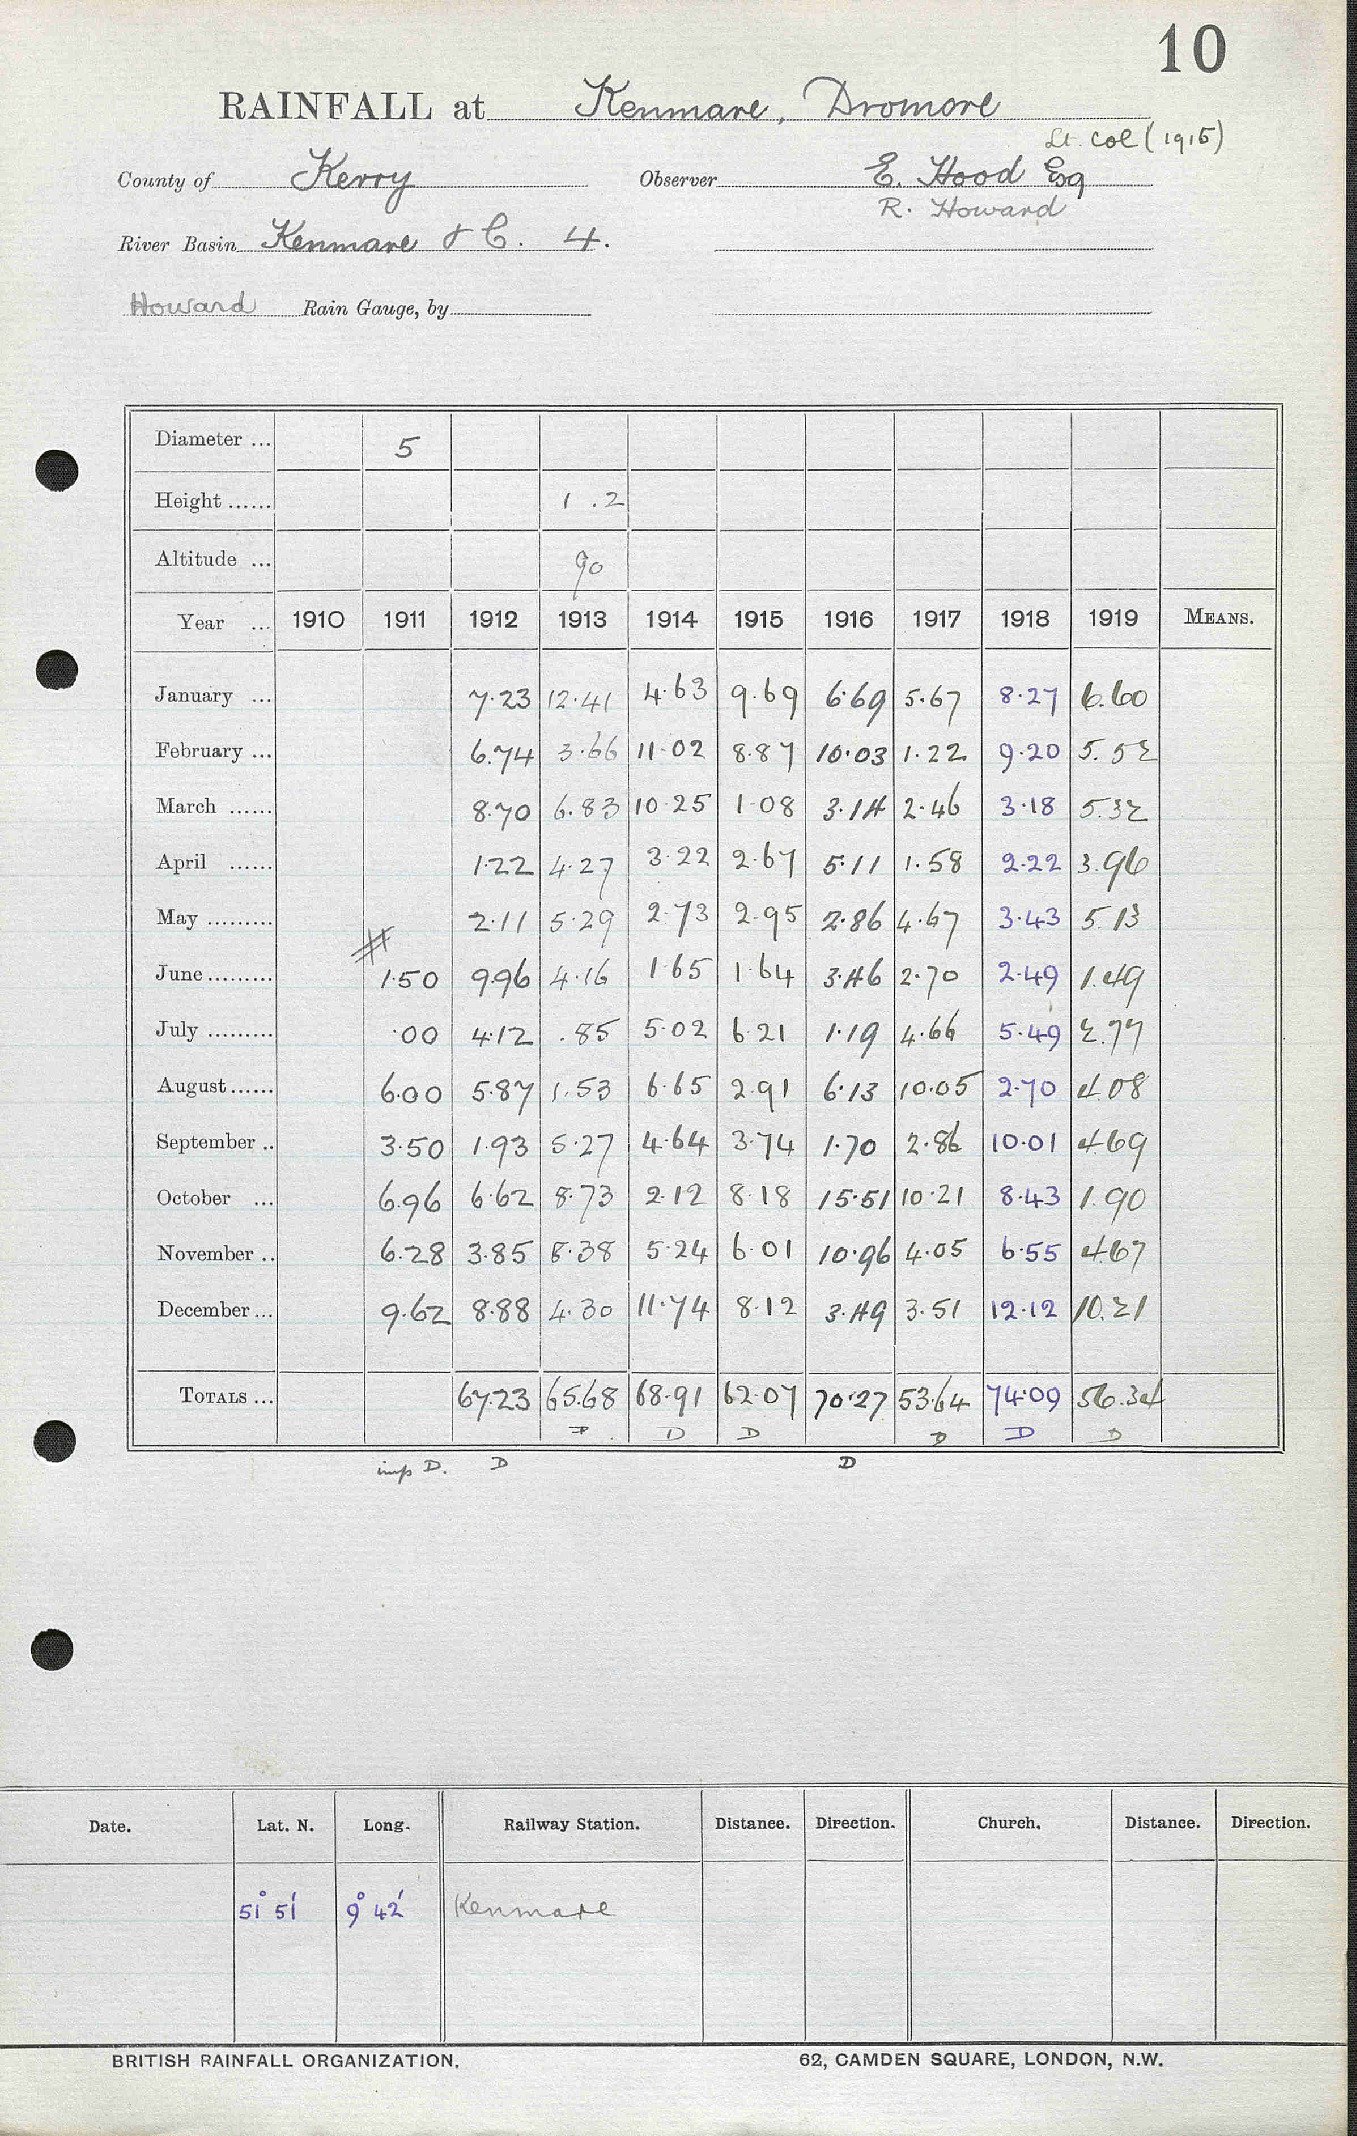 10
RAINFALL at Kenmare, Dromore
Lt. Col (1915)
County of Kerry Observer E. Hood Esq
R. Howard
River Basin Kenmare & C. 4.
Howard Rain Gauge, by
Diameter ... 5
Height ...... 1 .2
Altitude ... 90
Year ... 1910 1911 1912 1913 1914 1915 1916 1917 1918 1919 MEANS.
January ... 7.23 12.41 4.63 9.69 6.69 5.67 8.27 6.60
February ... 6.74 3.66 11.02 8.87 10.03 1.22 9.20 5.52
March ...... 8.70 6.83 10.25 1.08 3.14 2.46 3.18 5.32
April ...... 1.22 4.27 3.22 2.67 5.11 1.58 2.22 3.96
May ......... 2.11 5.29 2.73 2.95 2.86 4.67 3.43 5.13
June ......... # 1.50 9.96 4.16 1.65 1.64 3.46 2.70 2.49 1.49
July ......... .00 4.12 .85 5.02 6.21 1.19 4.66 5.49 2.77
August ...... 6.00 5.87 1.53 6.65 2.91 6.13 10.05 2.70 4.08
September .. 3.50 1.93 5.27 4.64 3.74 1.70 2.86 10.01 4.69
October ... 6.96 6.62 8.73 2.12 8.18 15.51 10.21 8.43 1.90
November .. 6.28 3.85 8.38 5.24 6.01 10.96 4.05 6.55 4.67
December ... 9.62 8.88 4.30 11.74 8.12 3.49 3.51 12.12 10.21
TOTALS ... 67.23 65.68 68.91 62.07 70.27 53.64 74.09 56.34
D D D D D D
imp D. D D
Date. Lat. N. Long. Railway Station. Distance. Direction. Church. Distance. Direction.
51° 51' 9° 42' Kenmare
BRITISH RAINFALL ORGANIZATION. 62, CAMDEN SQUARE, LONDON, N.W.